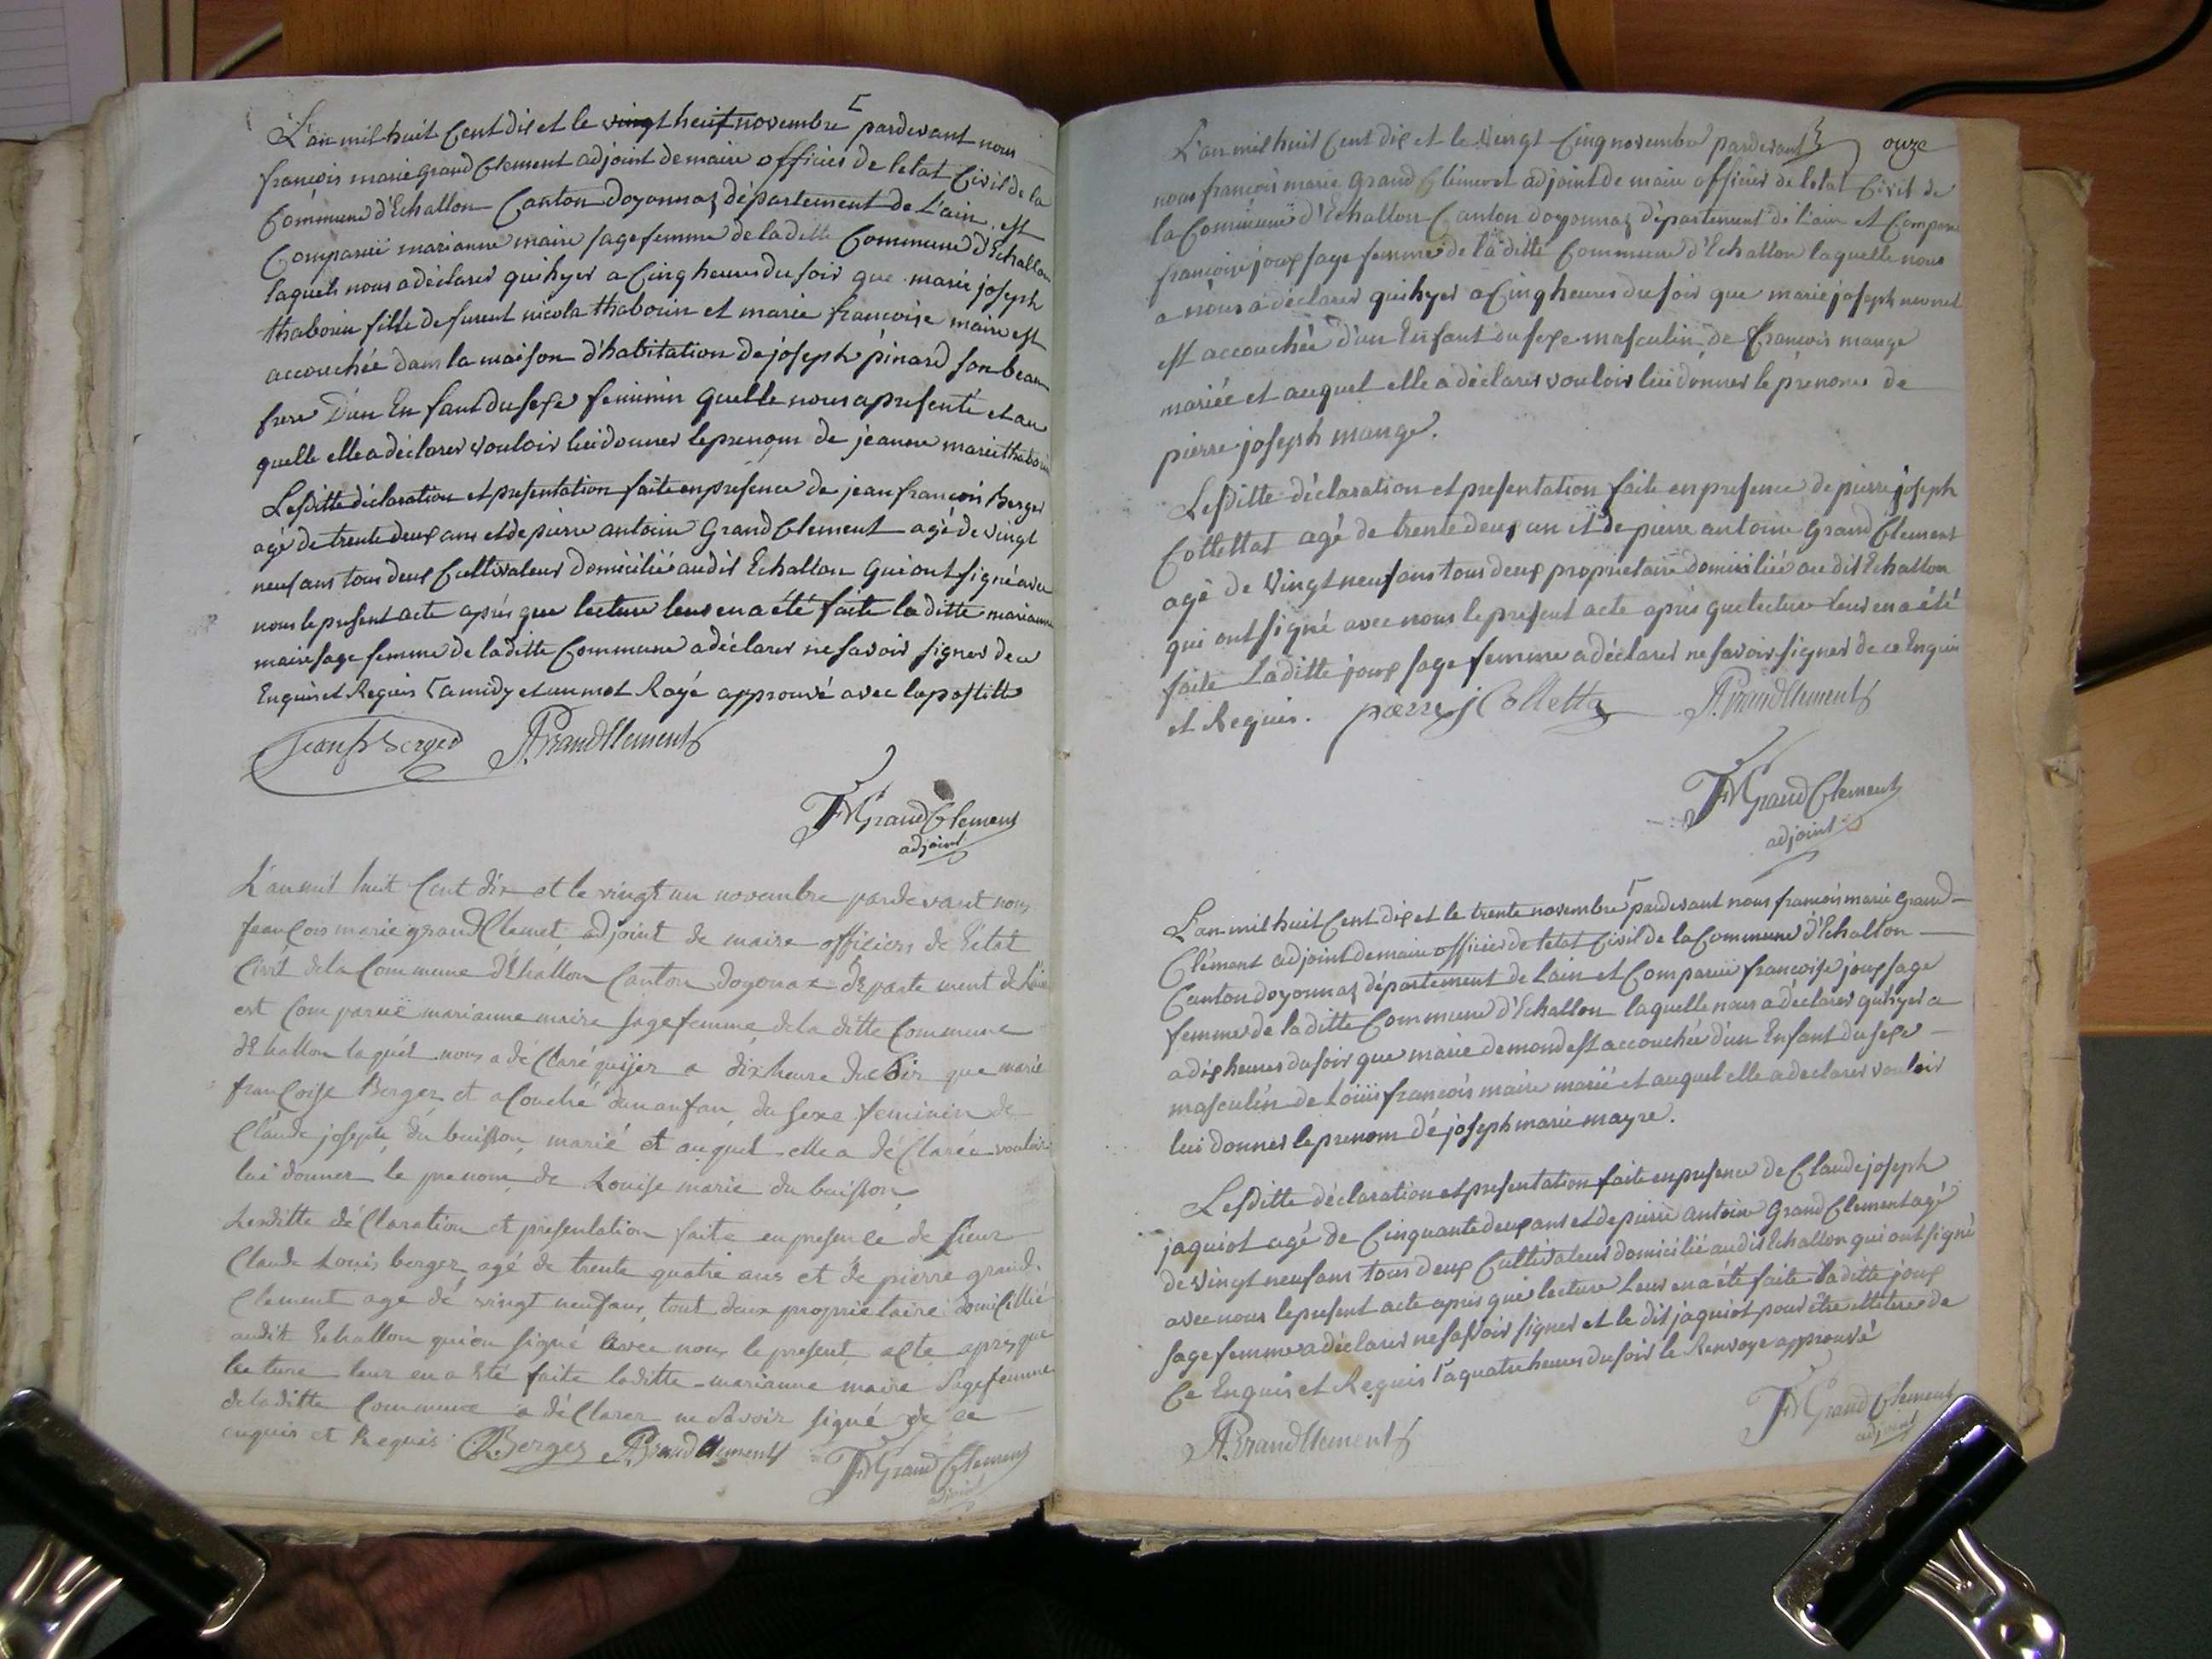 L'an mil huit Cent dix et le vingt huit novembre pardevant nous
françois marie grand Clement adjoint de maire officier de letat Civil de la
Commune d'Echallon Canton doyonnaz département de L'ain est
Comparuë marianne maire sage femme de la ditte Commune d'Echallon
laquels nous a déclarer quihyer a Cinq heures du soir que marie joseph
thabouin fille de furent nicola thabouin et marie francoise maire est
accouchée dans la maison d'habitation de joseph pinard son beau
frere D'un Enfant du sexe feminin quelle nous a presenté et au
quelle elle a déclarer vouloir lui donner le prenom de jeanne marie thabouin
Lesditte déclaration et presentation faite en presence de jean françois Berger
agé de trente deux ans et de pierre antoine Grand Clement agé de vingt
neuf ans tous deux Cultivateur domicilié audit Echallon qui ont signé avec
nous le present acte après que lecture leur en a été faite la ditte marianne
maire sage femme de la ditte Commune a déclarer ne savoir signer de ce
Enquis et Requis a midy et un mot Rayé approuvé avec la postille
Jean fs Berger PA. Grand Clement
FM Grand Clement
adjoint
L'an mil huit Cent dix et le vingt un novembre pardevant nous
francois marie grand Clemet adjoint de maire officiers de l'état
Civil dela Commune dEhallon Canton doyonax departement de l'ain
est Comparuë marianne maire sage femme dela ditte Commune
dEhallon laquél nous a déClaré quijer a dix heure du Soir que marie
francoise Berger et acouché dun anfan du sexe feminin de
Claude joseph du buisson marié et auquel elle a déClarée vouloir
lui donner le prenom de Louise marie du buisson
Lesditte déClaration et presentation faite en presence de Sieur
Claude Louis berger agé de trente quatre ans et de pierre grand
Clement age dé vingt neuf ans tout deux propriétaire domicillié
audit Echallon qui on signé avec nous le present acte aprs que
lecture leur en a été faite laditte marianne maire Sage femme
de laditte Commune a déClarer ne Savoir signé de ce
enquis et Requis CL Berger PA. Grand Clement FM Grand Clement
adjoint
L'an mil huit Cent dix et le Vengt Cinq novembre pardevant onze
nous francois marie Grand Clement adjoint de maire officier de letat Civil de
la Commune d'Echallon Canton doyonnaz département de l'ain et Comparu
francoise joux sage femme de la ditte Commune d'Echallon laquelle nous
a nous a déclarer quihyer a Cinq heures du soir que marie joseph
est accouchée d'un Enfant du sexe masculin de François mange
mariée et auquel elle a déclarer vouloir lui donner le prenom de
pierre joseph mange.
Lesditte déclaration et presentation faite en presence de pierre joseph
Collettat agé de trente deux an et de pierre antoine Grand Clement
agé de Vingt neuf ans tous deux proprietaire domiciliée audit Echallon
qui ont signé avec nous le present acte après que lecture leur en a été
faite Laditte joux sage femme a déclarer ne savoir signer de ce Enquis
et Requis. pierre j Colletta PA. Grand Clement
FM Grand Clement
adjoint
L'an mil huit Cent dix et le trente novembre pardevant nous francois marie Grand
Clément adjoint de maire officier de letat Civil de la Commune d'Echallon
Canton doyonnaz département de Lain et Comparuë francoise joux sage
femme de la ditte Commune d'Echallon laquelle nous a déclarer quihyer a
a dix heures du soir que marie demond est accouchée d'un Enfant du sexe
masculin de Loüis françois maire marié et auquel elle a declarer vouloir
lui donner le prenom dé joseph marie mayre.
Lesditte déclaration et presentation faite en presence de Claude joseph
jaquiot agé de Cinquante deux ans et de pierre antoine Grand Clement agé
de vingt neuf ans tous deux Cultivateur domicilié audit Echallon qui ont signé
avec nous le present acte apres que lecture Leur en a été faite la ditte joux
sage femme a déclarer ne savoir signer et le dit jaquiot pour être de
Ce Enquis et Requis a quatre heures du soir le Renvoye approuvé
PA. Grand Clement FM Grand Clement
adjoint